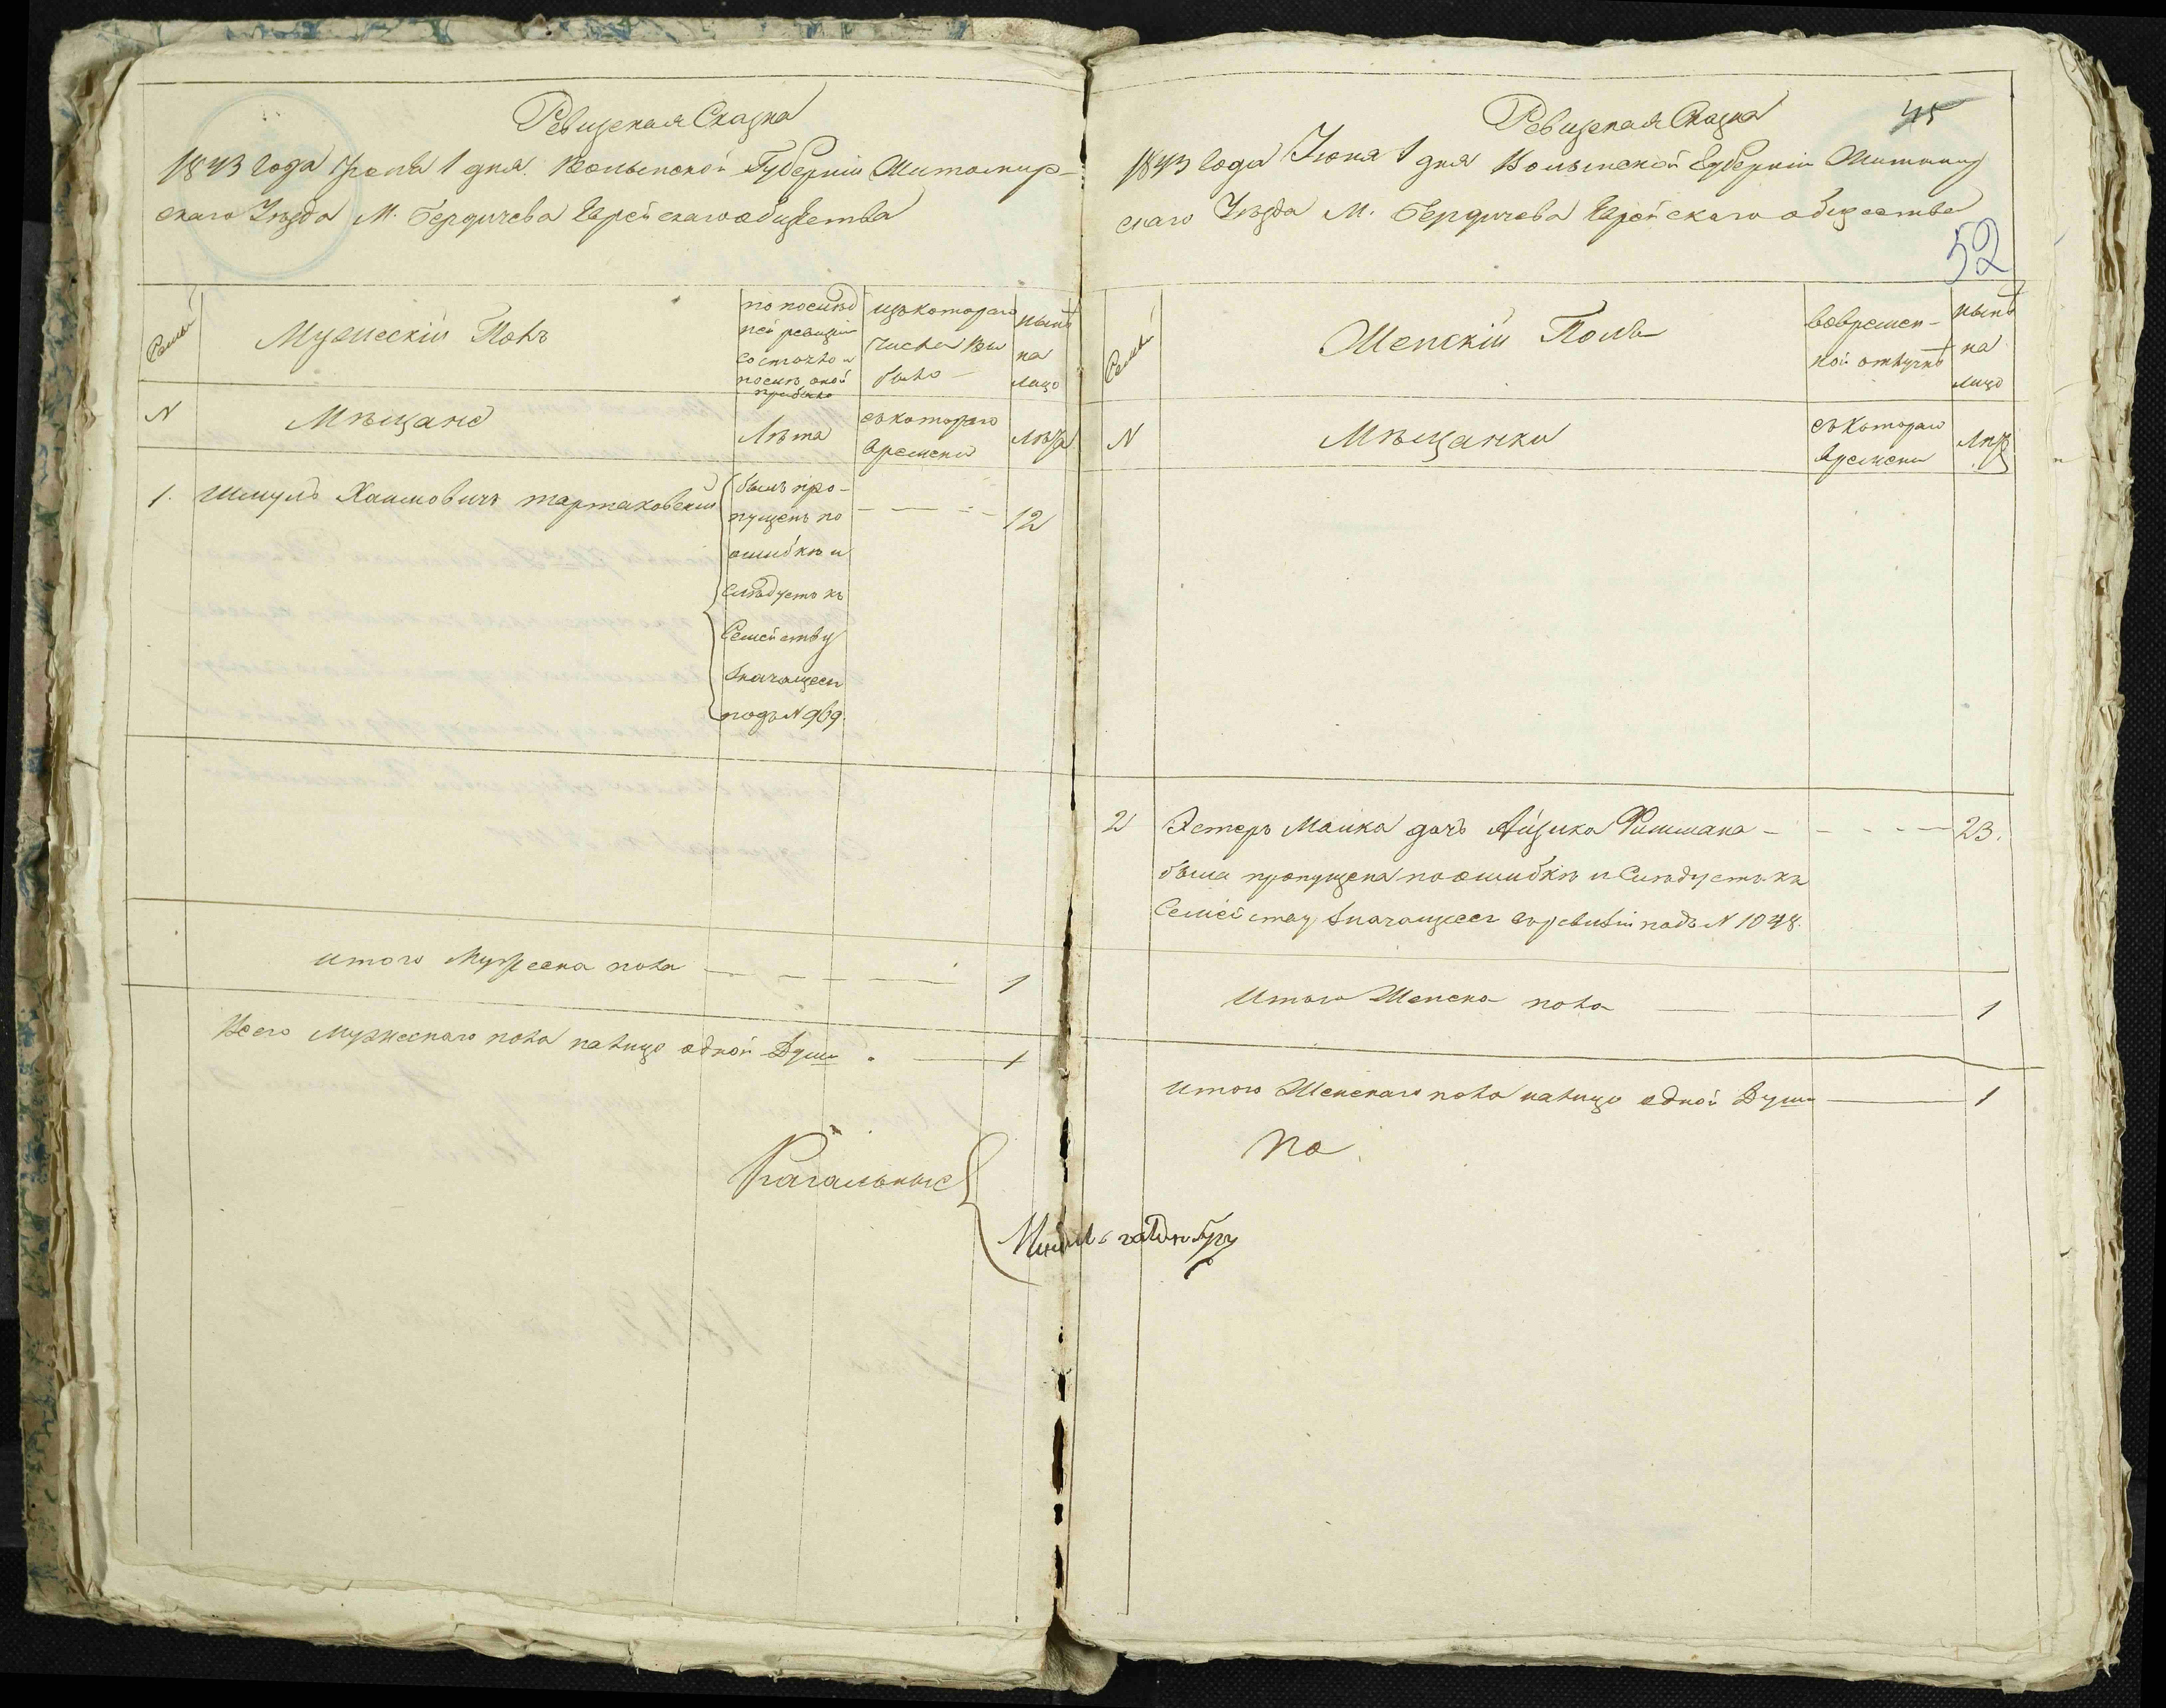 Ревизская Сказка
1843 года Июня 1 дня. Волынской Губернiи Житомир-
скаго Уѣзда М. Бердичева Еврейскаго общества
Семьи
Мужескiй Полъ
по послѣд
ней ревизiи
состояло и
послѣ оной
прибыло
изъ котораго
числа вы
было
нынѣ
на
лицо
N
Мѣщане
Лѣта
съ котораго
времени
Лѣта
1. Шмуль Хаимовичъ тартаковскiй
былъ про-
пущенъ по
ошибкѣ и
Слѣдуетъ къ
Семейству
Значащеся
подъ N 969.
12
итого Мужеска пола 1
Всего мужескаго пола налицо одной Души 1
Кагальные
Ревизская Сказка
45
1843 года Июня 1 дня Волынской Губернiи Житомир
скаго Уѣзда М. Бердичева Еврейскаго общества
52
Семьи
Женскiй Полъ
вовремен-
ной отлучкѣ
нынѣ
на
лицо
N
Мѣщанки
съ котораго
времени
Лѣта
2 Эстеръ Малка дочь Айзика Фишмана - 23.
была пропущена по ошибкѣ и Слѣдуетъ къ
Семейству Значащееся въ ревизiи подъ N 1048.
Итого Женска пола 1
итого Женскаго пола налицо одной Души 1